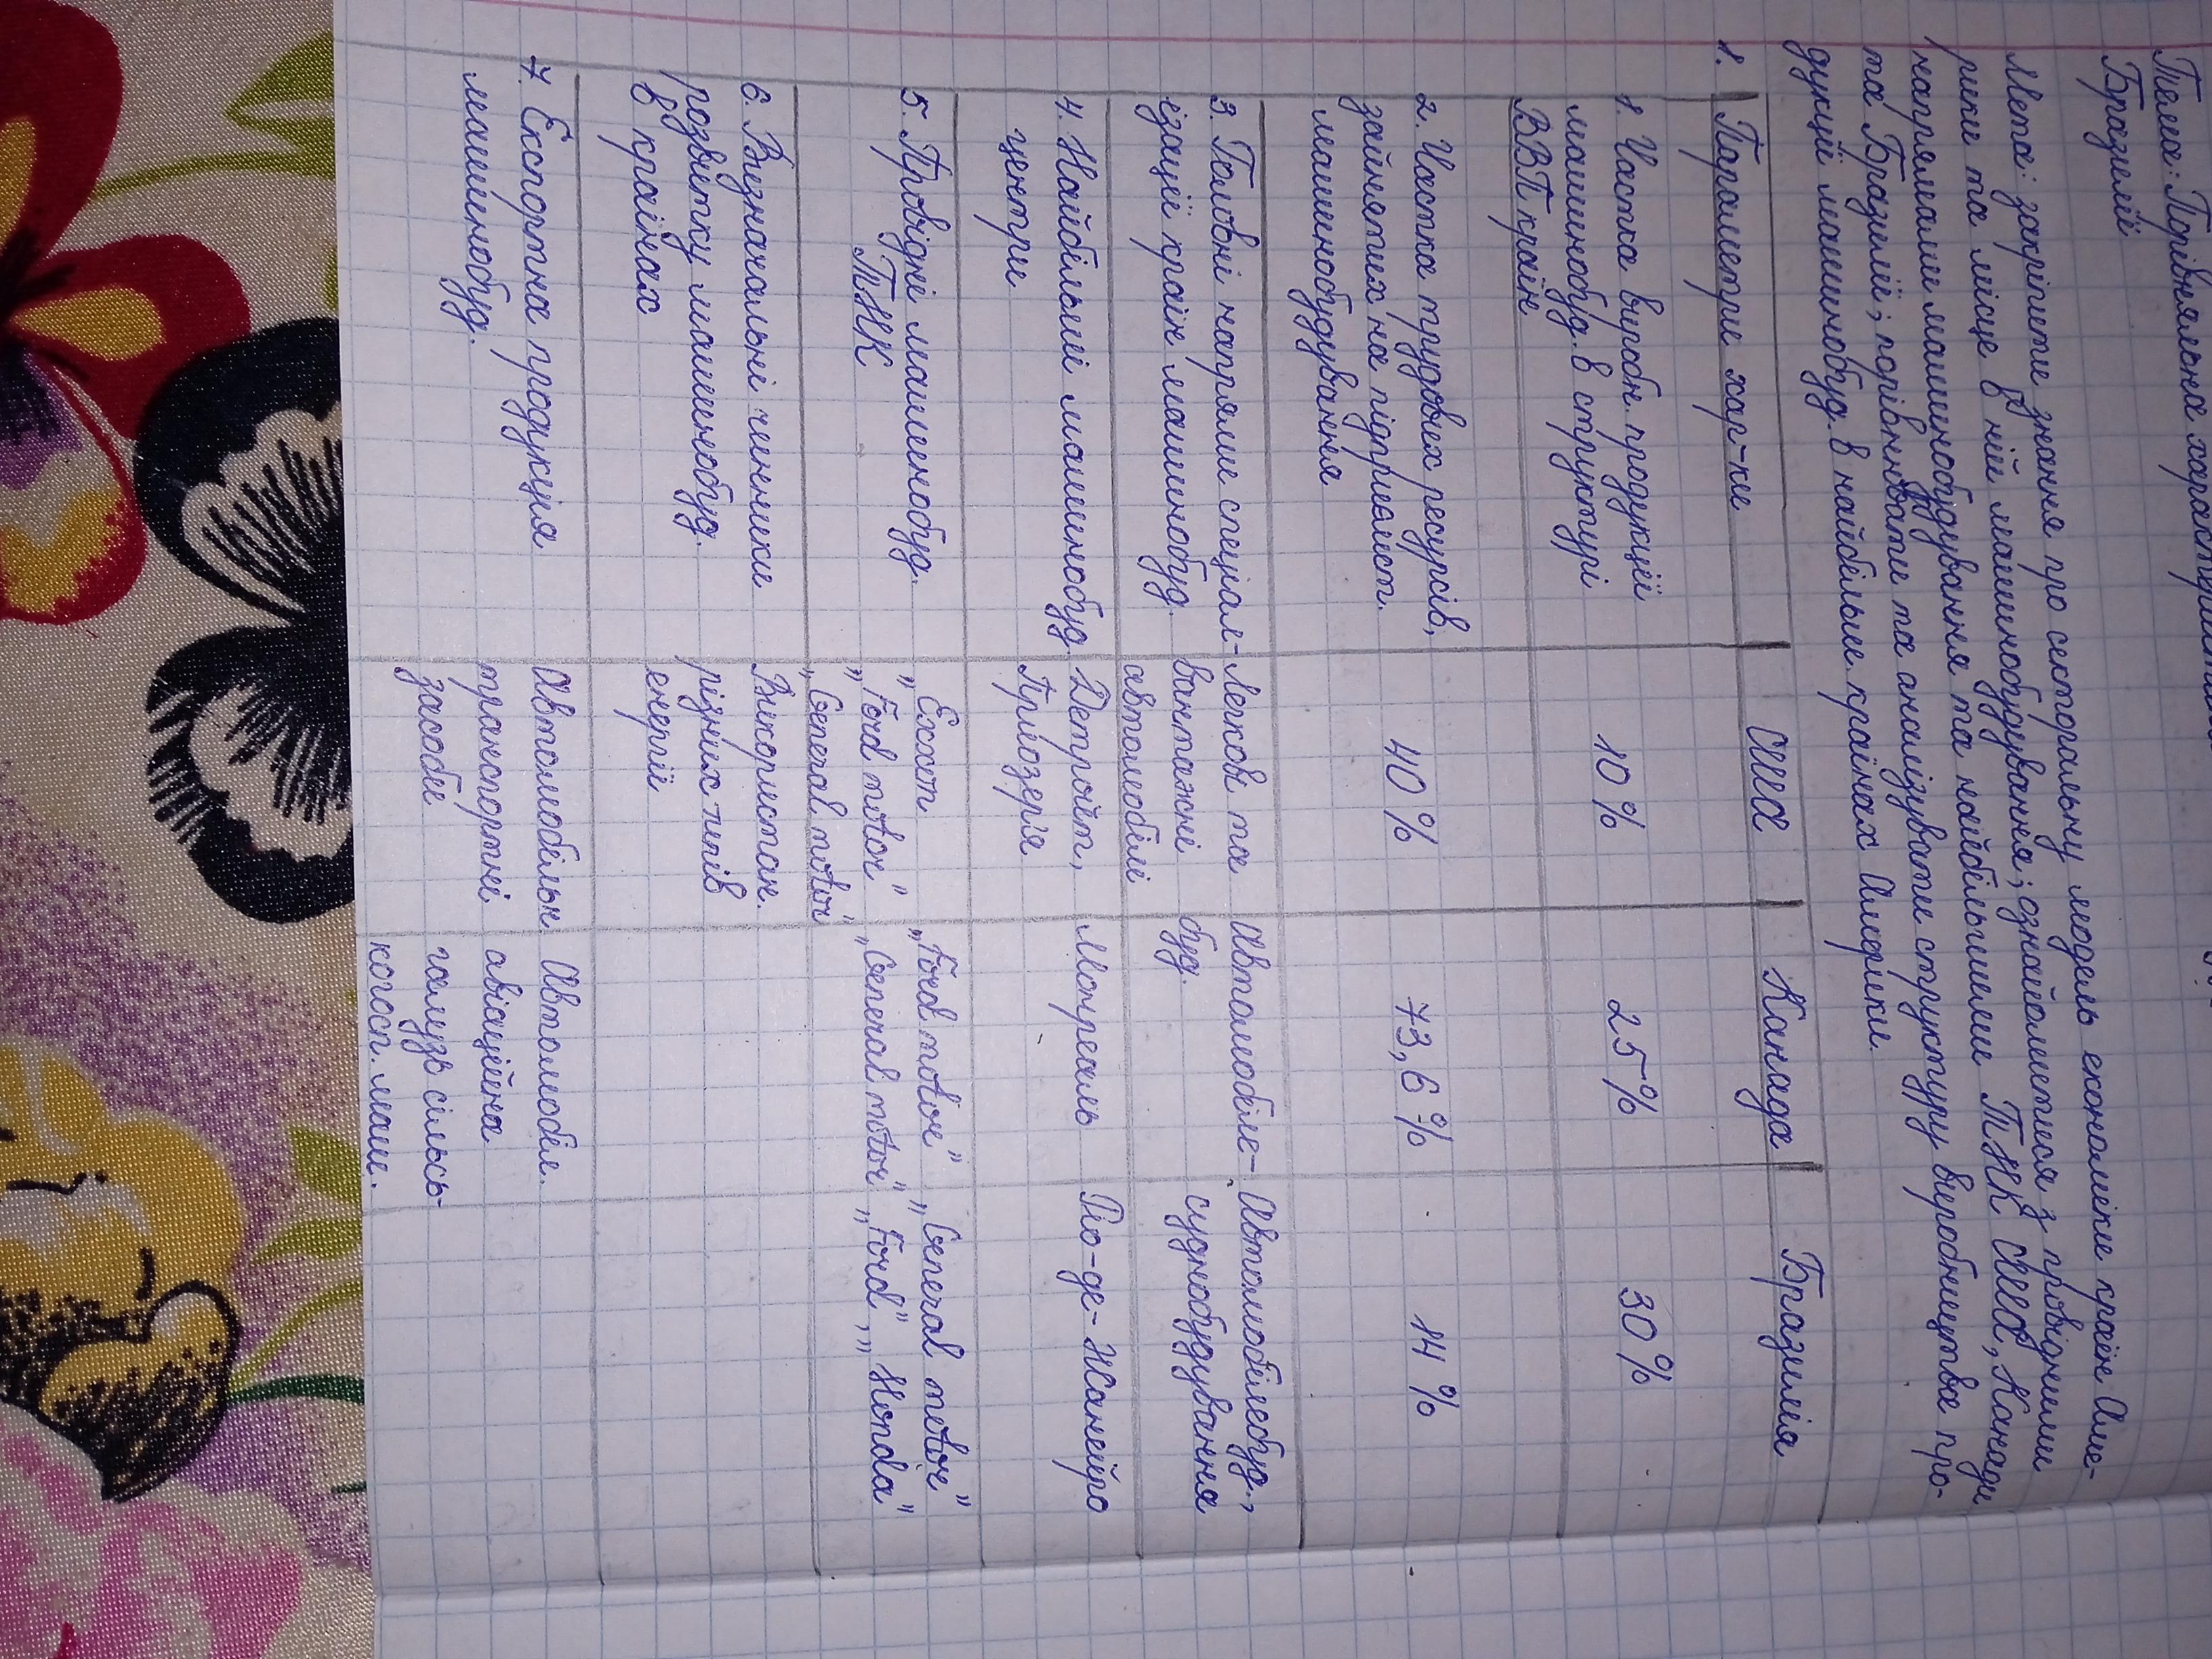 Тема: Порівняльна характеристика
Бразилії
Мета: закріпити знання про секторальну модель економіки країн Аме-
рики та місце в ній машинобудування; ознайомитися з провідними
напрямами машинобудування та найбільшими ТНК США, Канади
та Бразилії; порівнювати та аналізувати структуру виробництва про-
дукції машинобуд. в найбільших країнах Америки.
1. Параметри хар-ки США Канада Бразилія
1. Частка виробн. продукції
машинобуд. в структурі 10% 25% 30%
ВВП країн
2. Частка трудових ресурсів,
зайнятих на підприємст. 40% 73,6% 14%
машинобудування
3. Головні напрями спеціал- Легкові та Автомобіле- Автомобілебуд.,
ізації країн машинобуд. вантажні буд. суднобудування
автомобілі
4. Найбільші машинобуд. Детройт, Монреаль Ріо-де-Жанейро
центри Приозер'я
5. Провідні машинобуд. „Exxon „Ford motor" „General motor"
ТНК „Ford motor" „General motor" „Ford", „Honda"
„General motor"
6. Визначальні чинники Використан.
розвитку машинобуд. різних типів
в країнах енергії
7. Експортна продукція Автомобільн. Автомобіл.
машинобуд. транспортні авіаційна
засоби галузь сільсь-
когосп. маш.